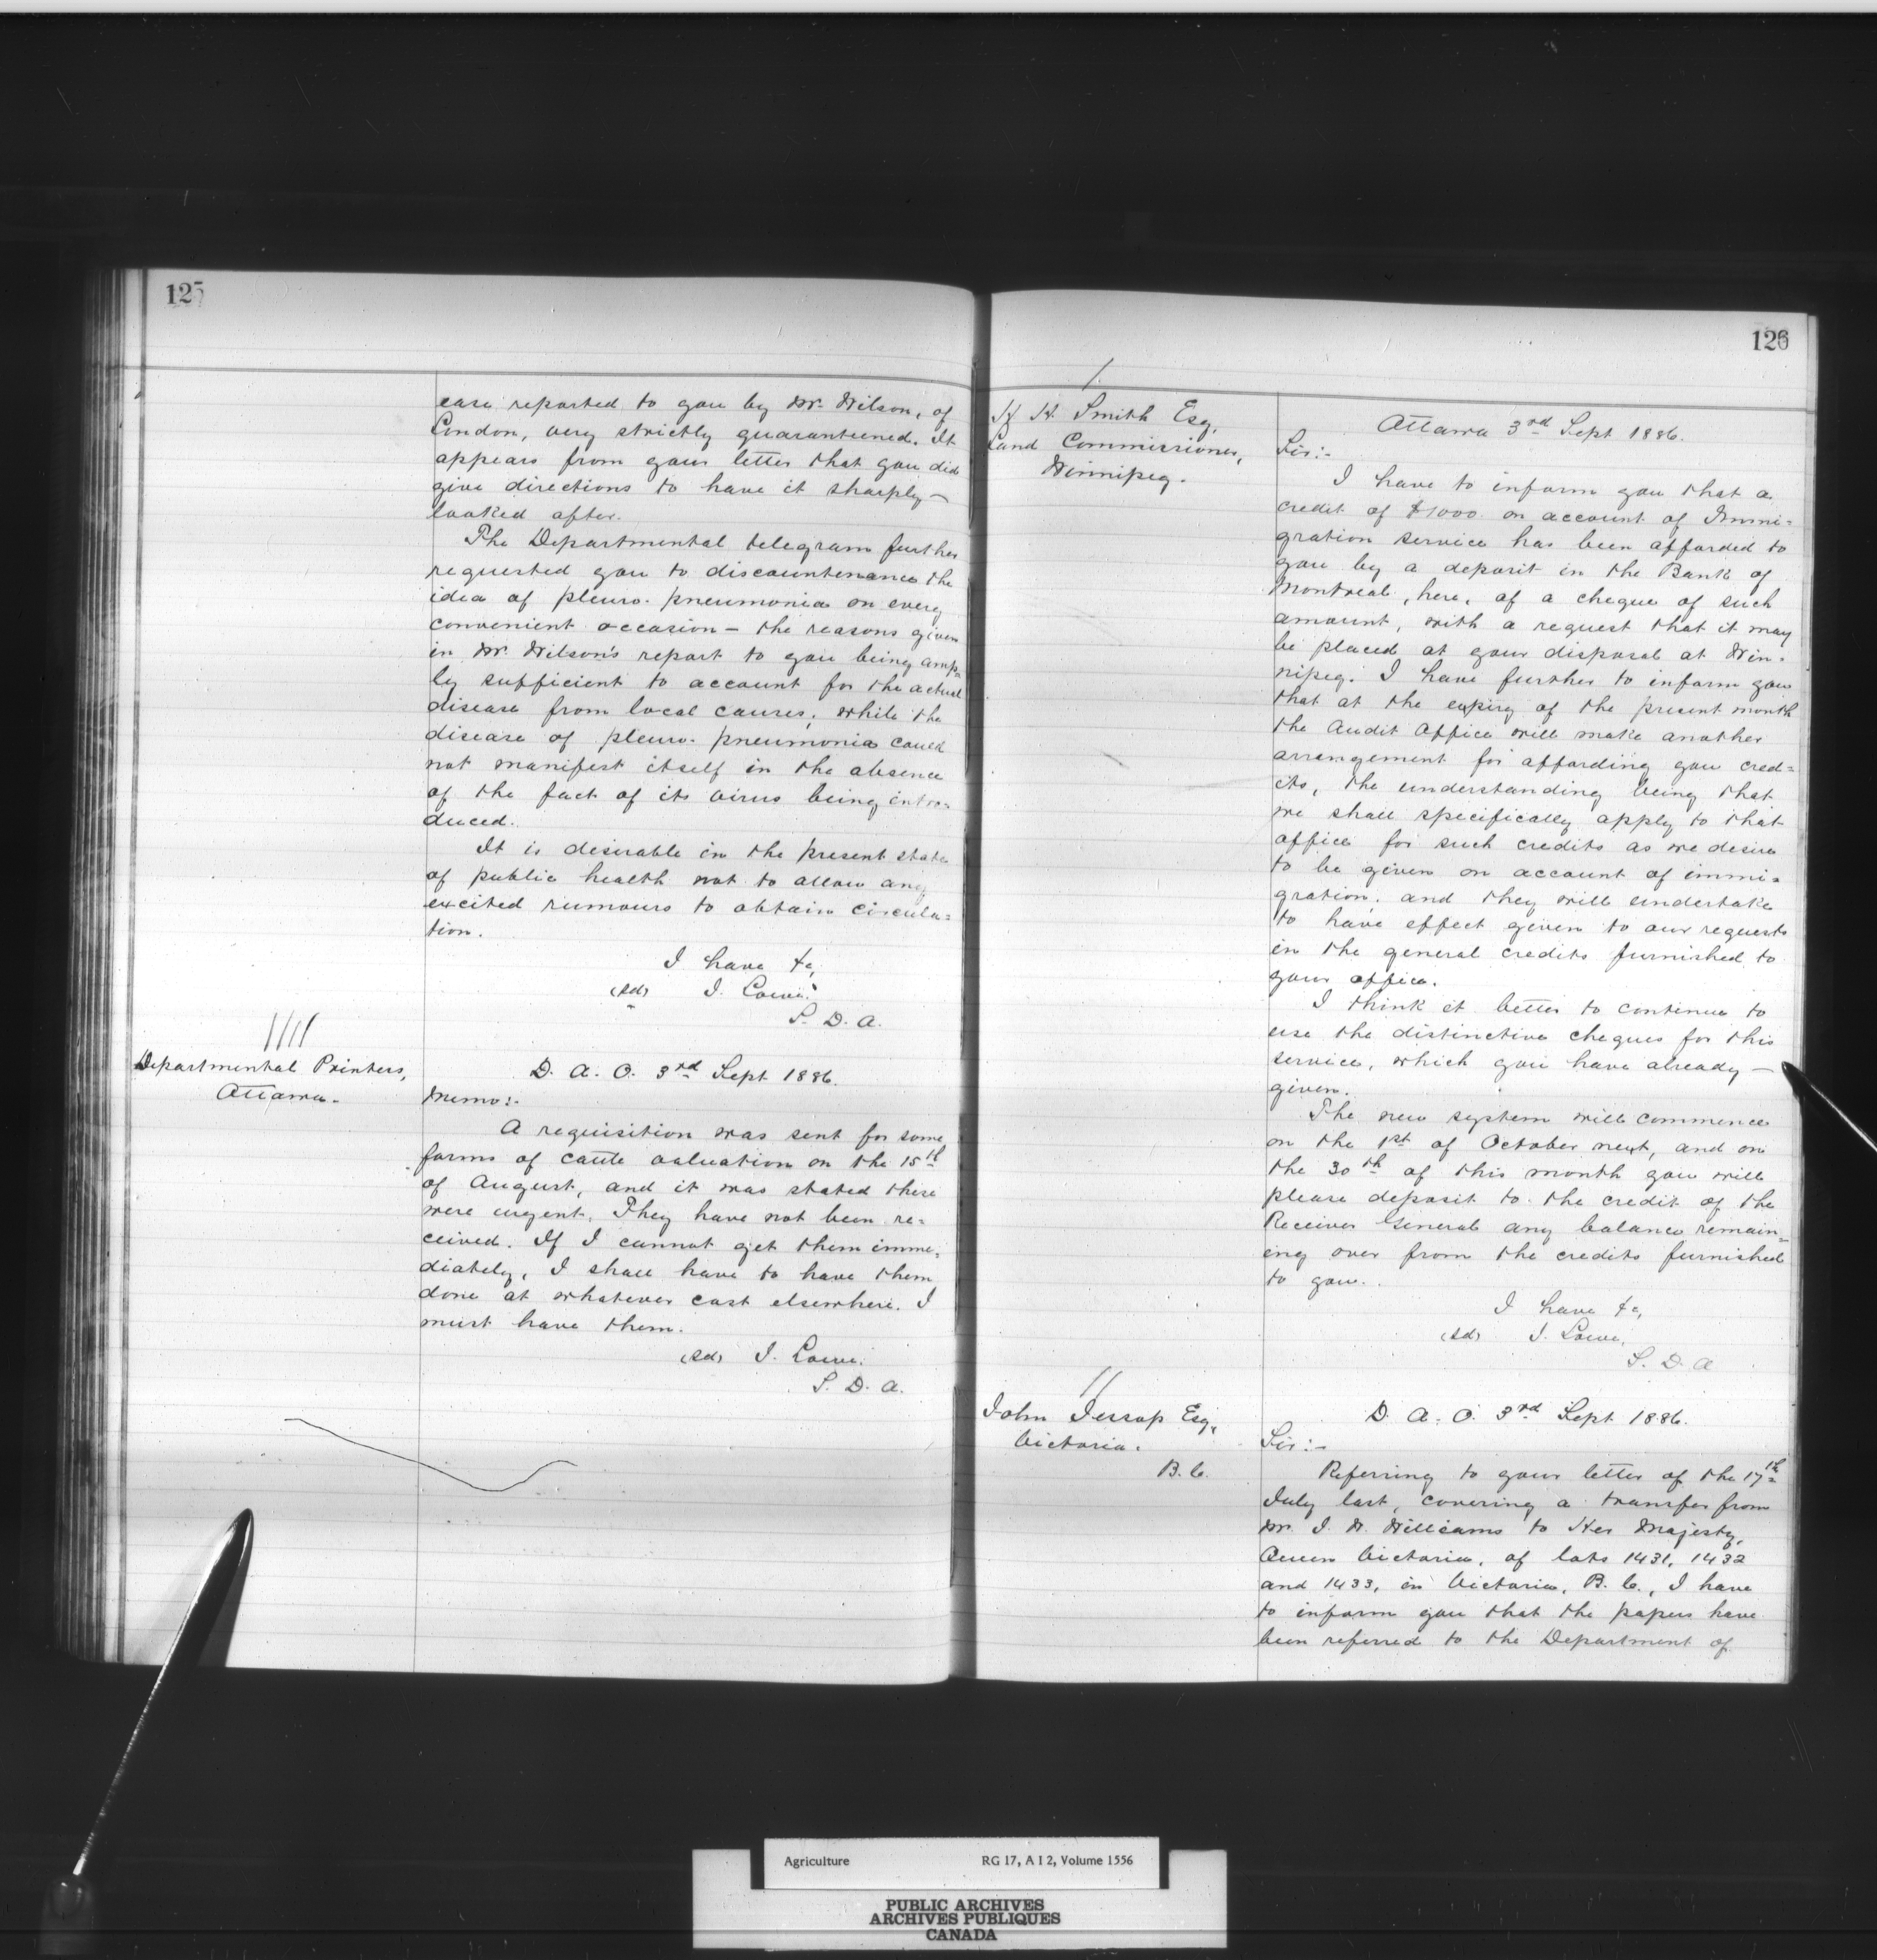 125
case reported to you by Mr. Wilson, of
London, very strictly quarantined. It
appears from your letter that you did
give directions to have it sharply—
looked after.
The Departmental telegram further
requested you to discountenance the
idea of pleuro-pneumonia on every
convenient occasion — the reasons given
in Mr. Wilson's report to you being amp=
ly sufficient to account for the actual
disease from local causes; while the
disease of pleuro-pneumonia could
not manifest itself in the absence
of the fact of its virus being intro=
duced.
It is desirable in the present state
of public health not to allow any
excited rumours to obtain circula=
tion.
I have &c,
(sd) J. Lowe.
S. D. A.
Departmental Printers,
Ottawa.
D. A. O. 3rd Sept 1886.
Memo:-
A requisition was sent for some
forms of cattle valuation on the 15th
of August, and it was stated these
were urgent. They have not been re=
ceived. If I cannot get them imme=
diately, I shall have to have them
done at whatever cost elsewhere. I
must have them.
(sd) J. Lowe.
S. D. A.
126
H. H. Smith Esq,
Land Commissioner,
Winnipeg.
Ottawa 3rd Sept 1886.
Sir:-
I have to inform you that a
credit of $1000 on account of Immi=
gration service has been afforded to
you by a deposit in the Bank of
Montreal, here, of a cheque of such
amount, with a request that it may
be placed at your disposal at Win=
nipeg. I have further to inform you
that at the expiry of the present month
the Audit Office will make another
arrangement for affording you cred=
its, the understanding being that
we shall specifically apply to that
office for such credits as we desire
to be given on account of immi=
gration, and they will undertake
to have effect given to our requests
in the general credits furnished to
your office.
I think it better to continue to
use the distinctive cheques for this
service, which you have already —
given.
The new system will commence
on the 1st of October next, and on
the 30th of this month you will
please deposit to the credit of the
Receiver General any balance remain=
ing over from the credits furnished
to you.
I have &c,
(sd) J. Lowe,
S. D. A
John Jessop Esq,
Victoria.
B. C.
D. A. O. 3rd Sept 1886.
Sir:-
Referring to your letter of the 17th
July last, covering a transfer from
Mr. J. W. Williams to Her Majesty,
Queen Victoria, of lots 1431, 1432
and 1433, in Victoria, B. C., I have
to inform you that the papers have
been referred to the Department of
Agriculture RG 17, A I 2, Volume 1556
PUBLIC ARCHIVES
ARCHIVES PUBLIQUES
CANADA